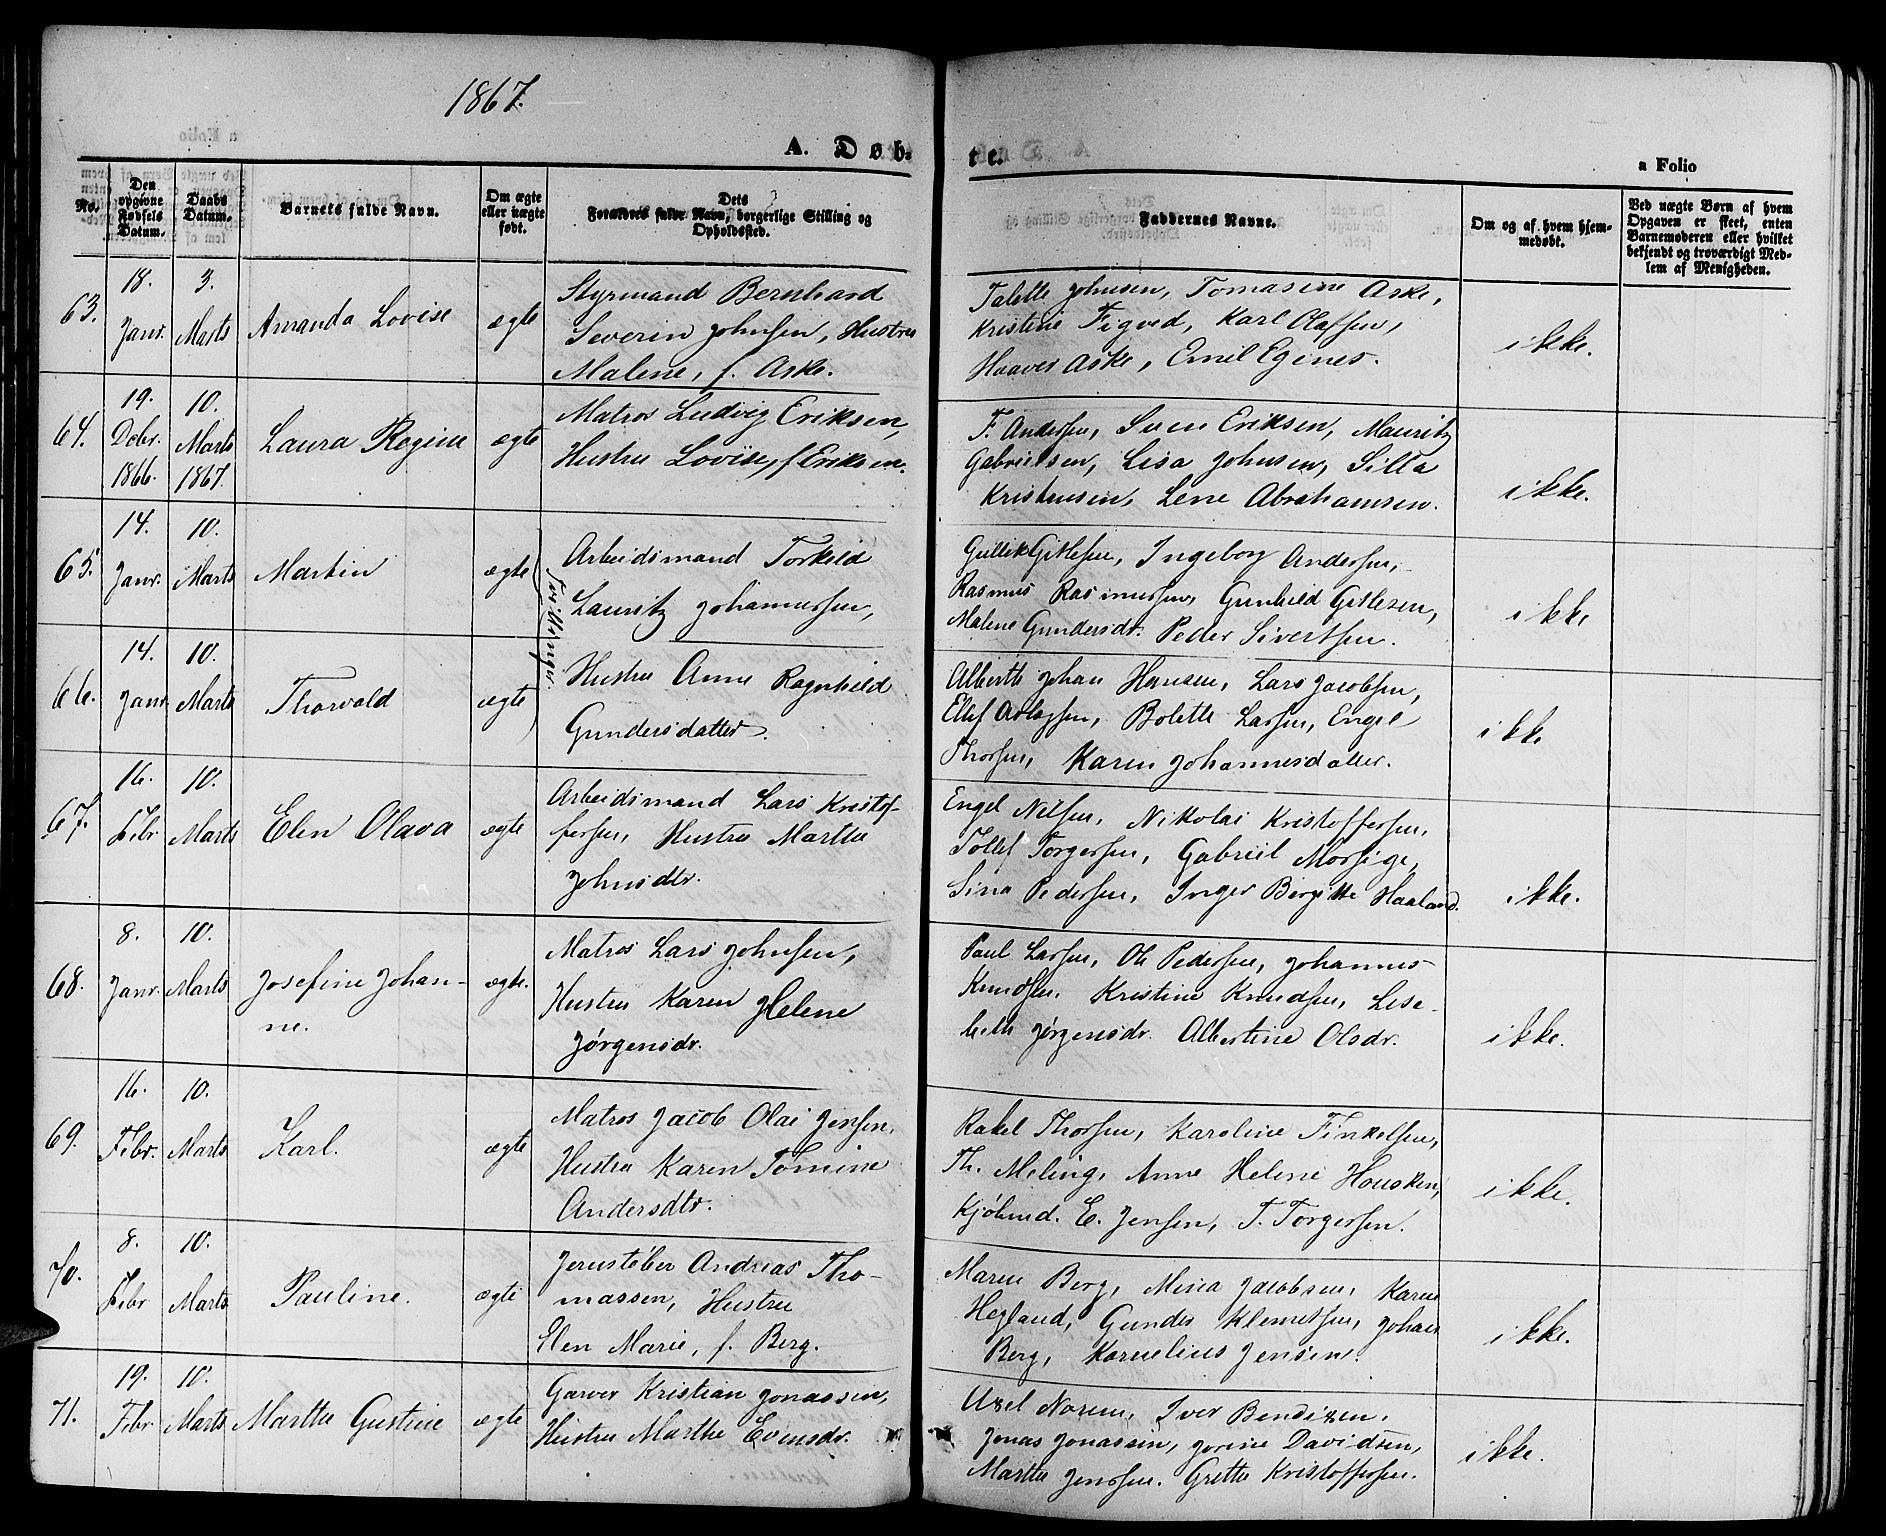 1867.
A. Døb-
te.
a Folio
No.
Den opgivne Fødsels Datum.
Daabs Datum.
Barnets fulde Navn.
Om ægte eller uægte født.
Dets Forældres fulde Navn, borgerlige Stilling og Opholdssted.
Faddernes Navne.
Om og af hvem hjemmedøbt.
Ved uægte Børn af hvem Opgaven er skeet, enten Barnemoderen eller hvilket bekjendt og troværdigt Medlem af Menigheden.
63.
18. Janr.
3. Marts
Amanda Lovise
ægte
Styrmand Bernhard
Severin Johnsen, Hustru
Malene, f. Aske.
Talette Johnsen, Tomasine Aske,
Kristine Tigved, Karl Olafsen,
Haaver Aske, Emil Egenes.
ikke.
64.
19. Debr. 1866.
10. Marts 1867.
Laura Regine
ægte
Matros Ludvig Eriksen,
Hustru Lovise, f. Eriksen.
F. Andersen, Sven Eriksen, Mauritz
Gabrielsen, Lisa Johnsen, Silla
Kristensen, Lene Abrahamsen.
ikke.
65.
14. Janr.
10. Marts
Martin
ægte
Tvillinger.
Arbeidsmand Torkild
Lauritz Johannessen,
Gullik Gitlesen, Ingeborg Andersen,
Rasmus Rasmussen, Gunhild Gitlesen,
Malene Gundersdr. Peder Sivertsen.
ikke
66.
14. Janr
10. Marts
Thorvald
ægte
Hustru Anne Ragnhild
Gundersdatter.
Alberth Johan Hansen, Lars Jacobsen,
Ellef Aslagsen, Bolette Larsen, Engel
Thorsen, Karen Johannesdatter.
ikke
67.
16. Febr
10. Marts
Elen Olava
ægte
Arbeidsmand Lars Kristof-
fersen, Hustru Marthe
Johnsdtr.
Engel Nilsen, Nikolai Kristoffersen,
Tollef Torgersen, Gabriel Morsige,
Sina Pedersen, Inger Birgitte Haaland.
ikke.
68.
8. Janr.
10. Marts
Josefine Johan-
ne.
ægte.
Matros Lars Johnsen,
Hustru Karen Helene
Jørgensdr.
Paul Larsen, Ole Pedersen, Johannes
Knudsen, Kristine Knudsen, Lise-
beth Jørgensdr. Albertine Olsdr.
ikke.
69.
16. Febr.
10. Marts
Karl.
ægte
Matros Jacob Olai Jensen,
Hustru Karen Tomine
Andersdtr.
Rakel Thorsen, Karoline Finkelsen,
Th. Meling, Anne Helene Housken,
Kjøbmd. E. Jensen, T. Torgersen.
ikke.
70.
8. Febr
10. Marts
Pauline.
ægte
Jernstøber Andreas Tho-
massen, Hustru
Elen Marie, f. Berg.
Maren Berg, Mina Jacobsen, Karen
Hegland, Gunder Klemetsen, Johan
Berg, Kornelius Jensen.
ikke.
71.
19. Febr
10. Marts
Marthe Gustine
ægte
Garver Kristian Jonassen,
Hustru Marthe Evensdr.
Axel Noren, Iver Bendixen,
Jonas Jonassen, Jorine Davidsen,
Marthe Jenssen. Grethe Kristoffersen.
ikke.